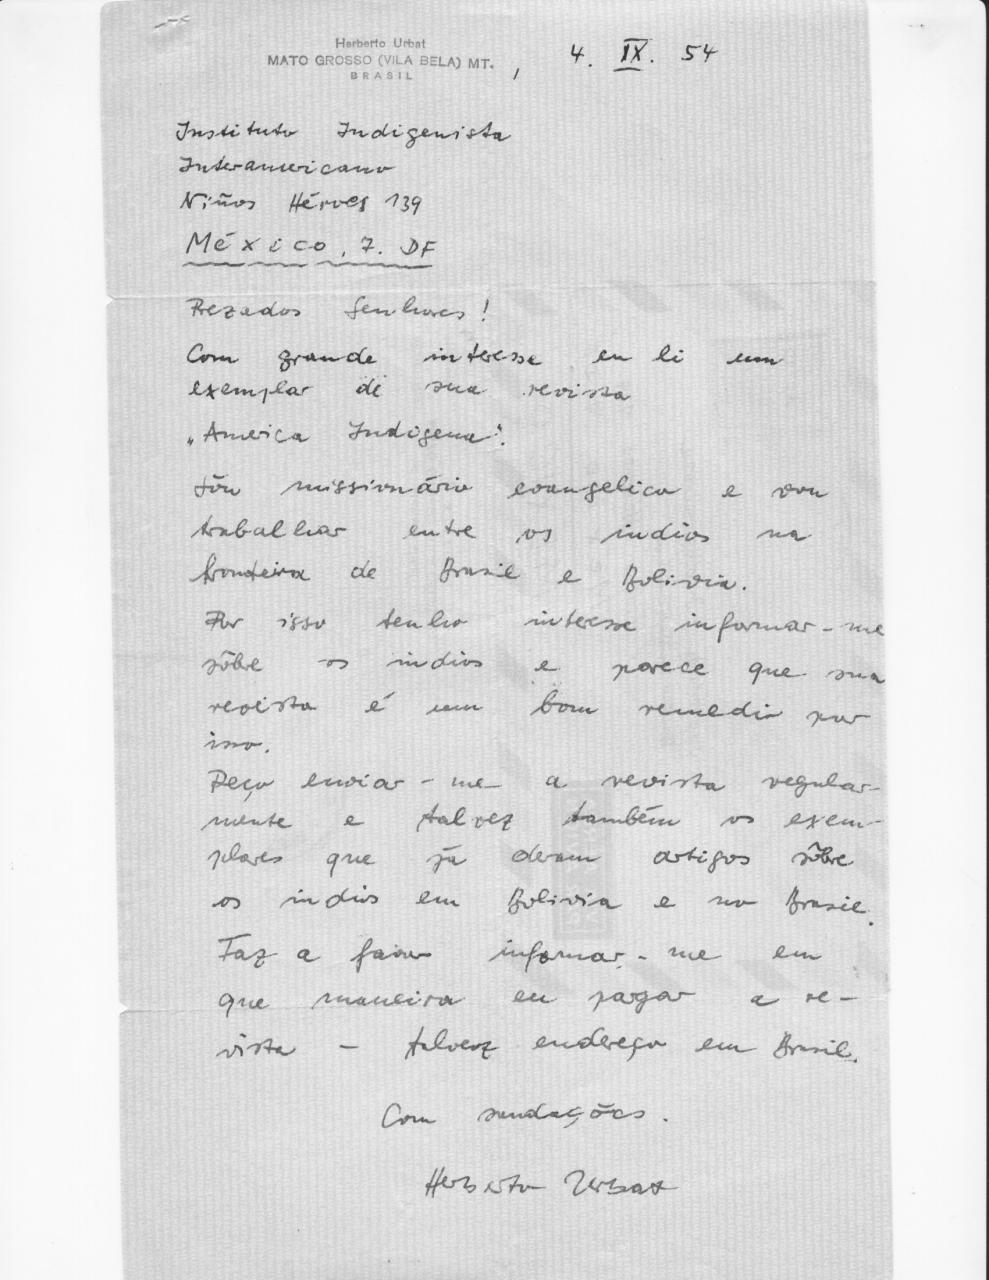 Herberto Urbat
MATO GROSSO (VILA BELA) MT.
BRASIL
, 4. IX. 54
Instituto Indigenista
Interamericano
Niños Héroes 139
México, 7. DF
Prezados Senhores!
Com grande interesse eu li um
exemplar de sua revista
„America Indigena".
Sōu missionário evangelico e vou
trabalhar entre os indios na
fronteira de Brasil e Bolivia.
Por isso tenho interesse informar-me
sôbre os indios e parece que sua
revista é um bom remedio por
isso.
Peço enviar-me a revista regular-
mente e talvez também os exem-
plares que já deram artigos sôbre
os indios em Bolivia e no Brasil.
Faz a favor informar-me em
que maneira eu pagar a re-
vista – talvez endereço em Brasil.
Com saudações.
Herberto Urbat